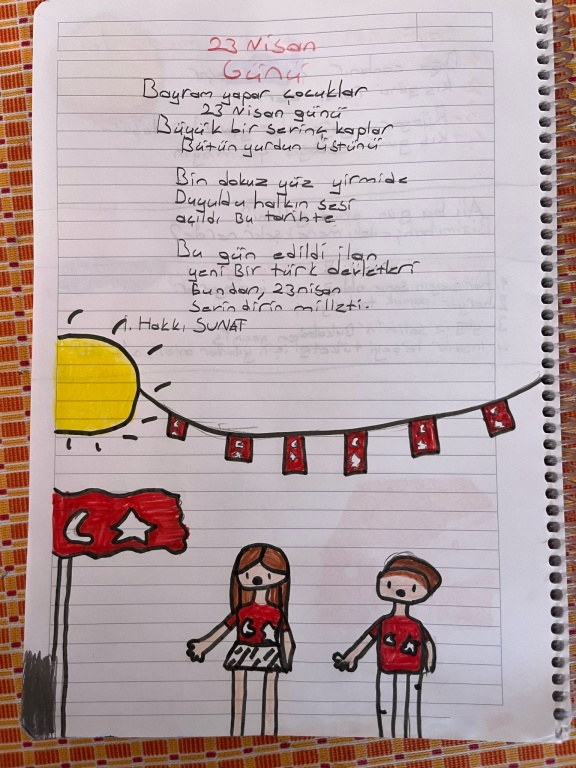 23 Nisan
Günü
Bayram yapar çocuklar
23 Nisan günü
Büyük bir serinç kaplar
Bütün yurdun üstünü
Bin dokuz yüz yirmide
Duyuldu halkın sesi
açıldı Bu tarihte
Bu gün edildi ilan
yeni Bir türk devletleri
Bundan, 23 nisan
Serindirin milleti.
İ. Hakkı SUNAT